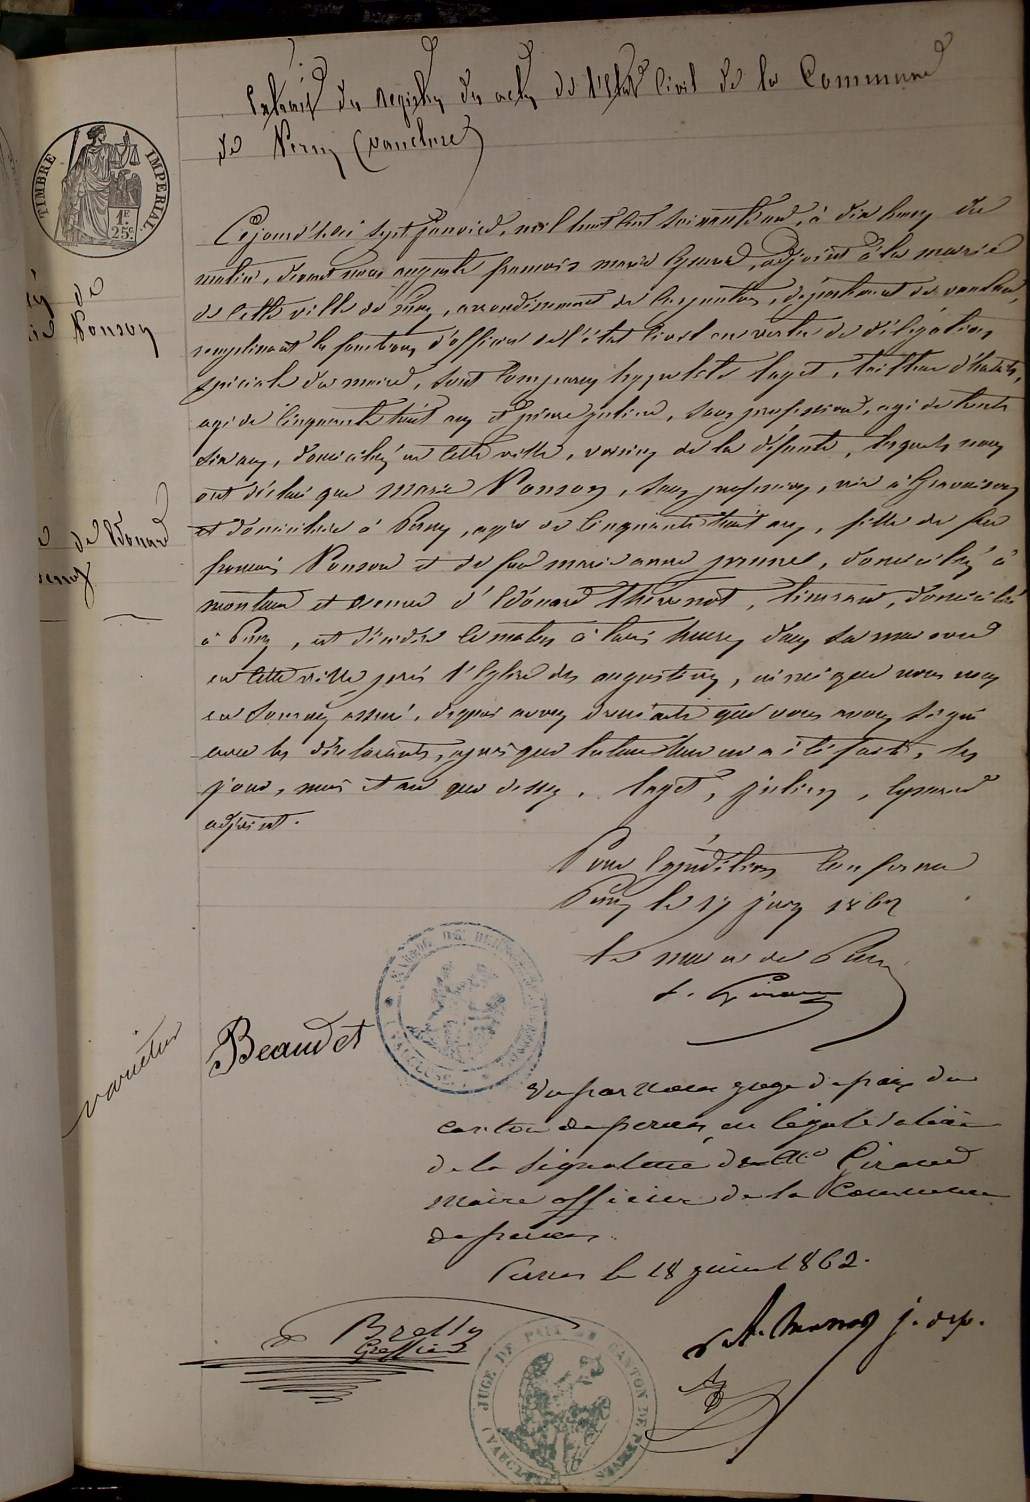 Extrait des registres des actes de l'Etat Civil de la Commune
de Pernes (Vaucluse)
TIMBRE IMPERIAL
1F.
25c.
Cejourd'hui sept janvier, mil huit cent soixante deux, à dix heures du
matin, devant nous auguste françois marie Eymard, adjoint à la mairie
de cette ville de Pernes, arrondissement de Carpentras, département de vaucluse,
remplissant les fonctions d'officier de l'état civil en vertu de délégation
spéciale du maire, sont comparus hyppolite Laget, tailleur d'habits,
agé de cinquante huit ans et pierre julien, sans profession, agé de trente
six ans, domiciliés en cette ville, voisins de la défunte, lesquels nous
ont déclaré que marie Ponson, sans profession, née à
et domiciliée à Pernes, agée de cinquante huit ans, fille de feu
françois Ponson et de feue marie anne prunel, domiciliés à
et veuve d'Edouard thévenot, domicilié
à Pernes, est décédée ce matin à trois heures, dans sa maison
en cette ville près l'Eglise des augustins, ainsi que nous nous
en sommes assuré, dequoi avons dressé acte que nous avons signé
avec les déclarants, après que lecture leur en a été faite, les
jour, mois et an que dessus. Laget, julien, Eymard
adjoint.
de
Ponson
de Edouard
Pour Expédition Conforme
Pernes le 17 juin 1862
Le maire de Pernes
Giraud
MAIRIE DE PERNES
(VAUCLUSE)
Beaudet
varietur
Vu par nous juge de paix du
canton de pernes, en légalisation
de la signature de Mr Giraud
maire officier de la Commune
de pernes
Pernes le 18 juin 1862.
j. de p.
Greffier
JUGE DE PAIX DU CANTON DE PERNES (VAUCLUSE)